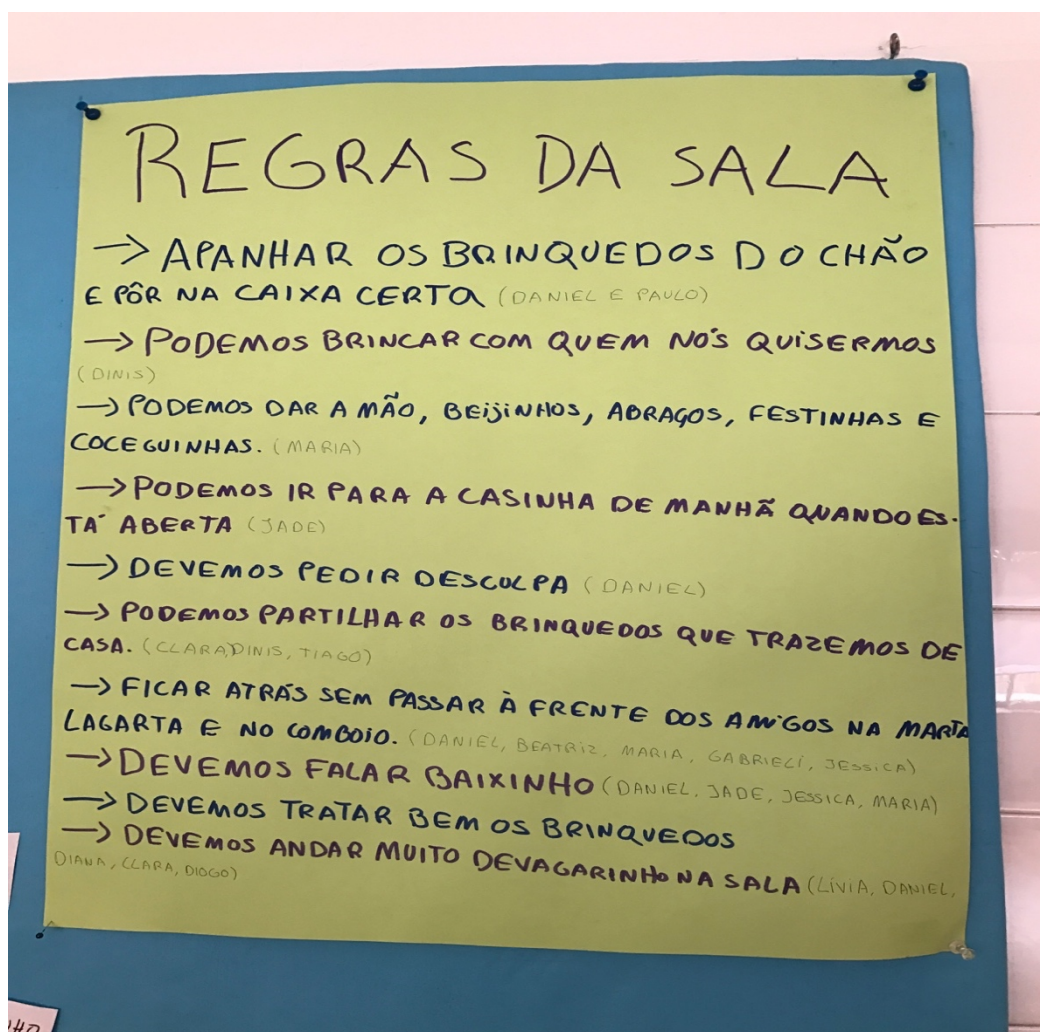 REGRAS DA SALA
→ APANHAR OS BRINQUEDOS DO CHÃO
E PÔR NA CAIXA CERTA (DANIEL E PAULO)
→ PODEMOS BRINCAR COM QUEM NÓS QUISERMOS
(DINIS)
→ PODEMOS DAR A MÃO, BEIJINHOS, ABRAÇOS, FESTINHAS E
COCEGUINHAS. (MARIA)
→ PODEMOS IR PARA A CASINHA DE MANHÃ QUANDO ES-
TÁ ABERTA (JADE)
→ DEVEMOS PEDIR DESCULPA (DANIEL)
→ PODEMOS PARTILHAR OS BRINQUEDOS QUE TRAZEMOS DE
CASA. (CLARA, DINIS, TIAGO)
→ FICAR ATRÁS SEM PASSAR À FRENTE DOS AMIGOS NA MARTA
LAGARTA E NO COMBOIO. (DANIEL, BEATRIZ, MARIA, GABRIELI, JESSICA)
→ DEVEMOS FALAR BAIXINHO (DANIEL, JADE, JESSICA, MARIA)
→ DEVEMOS TRATAR BEM OS BRINQUEDOS
→ DEVEMOS ANDAR MUITO DEVAGARINHO NA SALA (LÍVIA, DANIEL,
DIANA, CLARA, DIOGO)